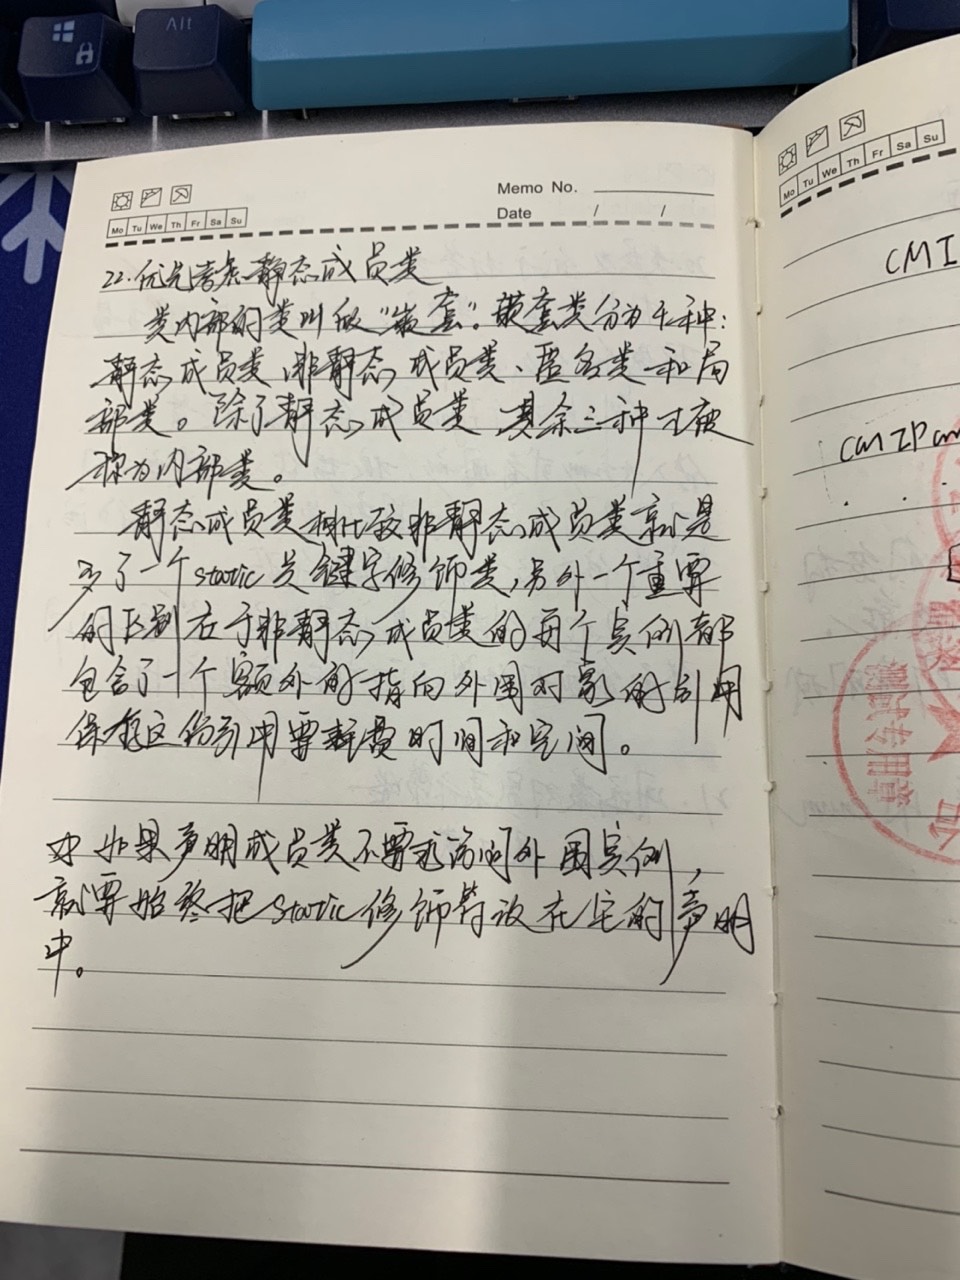 Alt
Memo No.
Date / /
Mo Tu We Th Fr Sa Su
22.优先考虑静态成员类
类内部的类叫做“嵌套”。嵌套类分为4种:
静态成员类、非静态成员类、匿名类和局
部类。除了静态成员类 其余三种才被
称为内部类。
静态成员类相比较非静态成员类就是
多了一个static关键字修饰类,另外一个重要
的区别在于非静态成员类的每个实例都
包含了一个额外的指向外围对象的引用
保存这份引用要耗费时间和空间。
如果声明成员类不要求访问外围实例,
就要始终把static修饰符放在它的声明
中。
Mo Tu We Th Fr Sa Su
CMI